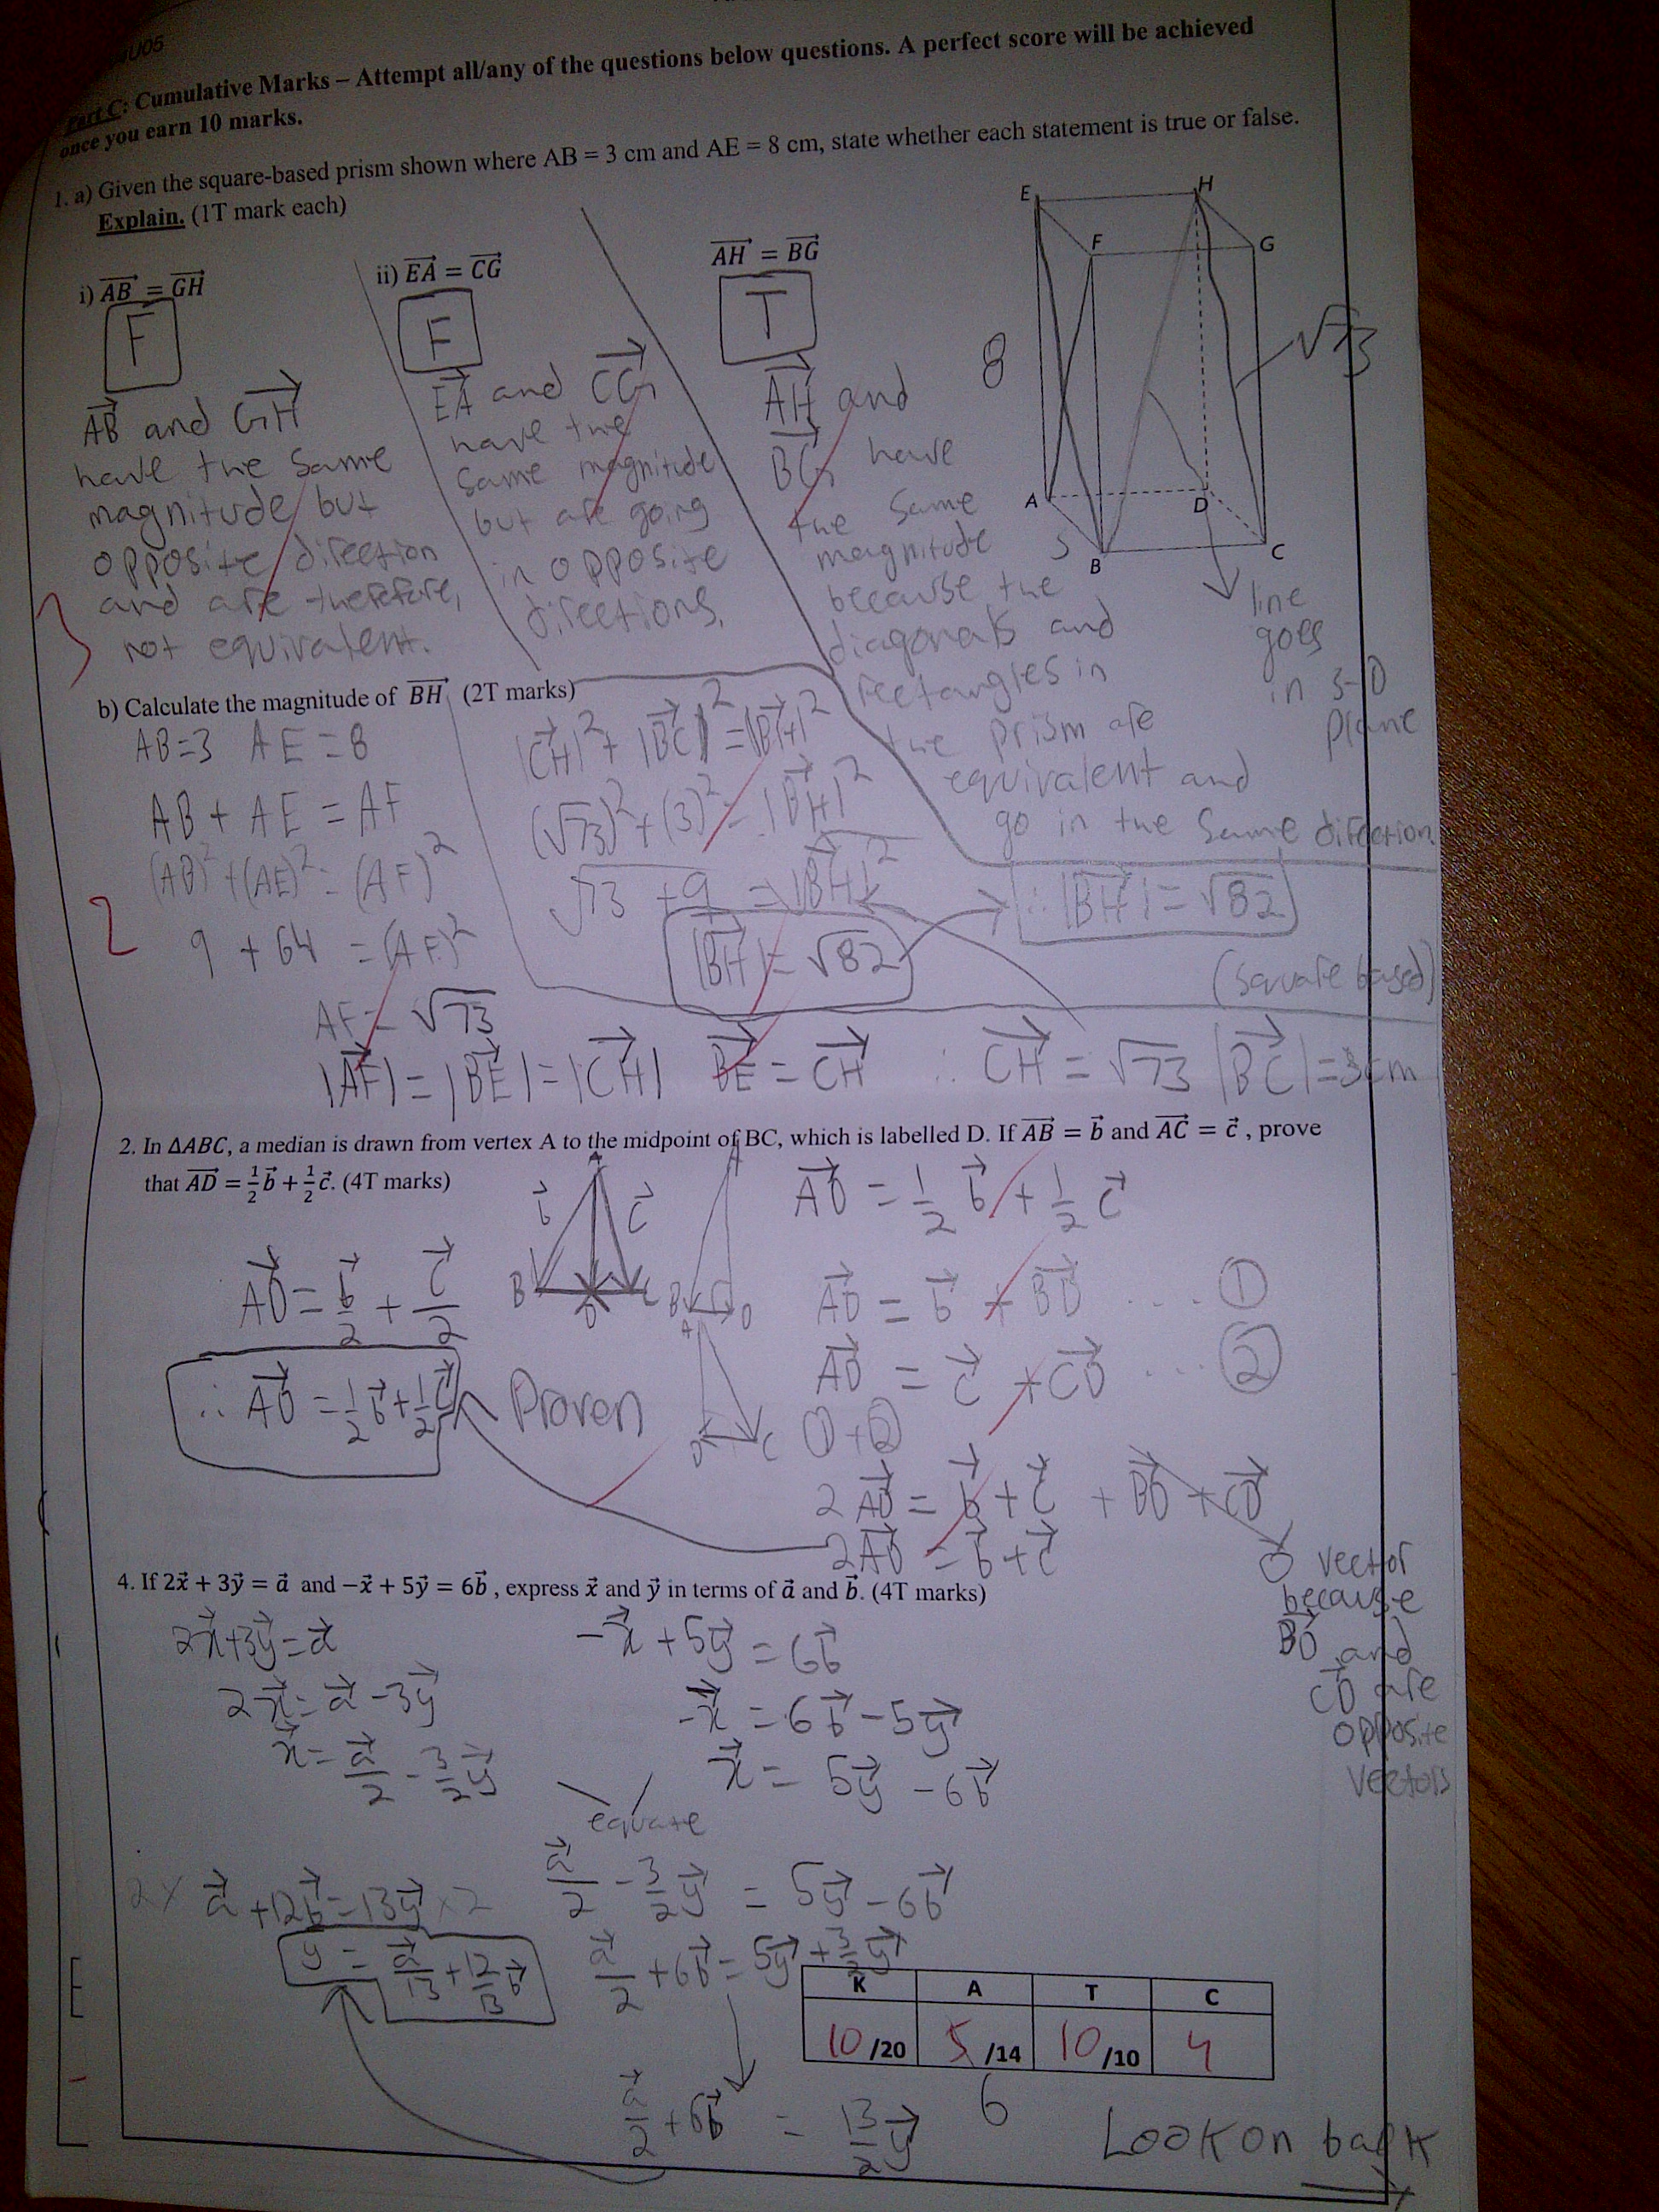 U05
Part C: Cumulative Marks – Attempt all/any of the questions below questions. A perfect score will be achieved
once you earn 10 marks.
1. a) Given the square-based prism shown where AB = 3 cm and AE = 8 cm, state whether each statement is true or false.
Explain. (1T mark each)
i) AB⃗ = GH⃗
F
AB⃗ and GH⃗
have the same
magnitude but
opposite direction
and are therefore,
not equivalent.
3
ii) EA⃗ = CG⃗
F
EA⃗ and CG⃗
have the
same magnitude
but are going
in opposite
directions.
AH⃗ = BG⃗
T
AH⃗ and
BG⃗ have
the same
magnitude
because the
diagonals and
rectangles in
the prism are
equivalent and
go in the same direction.
E
H
F
G
8
√73
A
D
B
C
line
goes
in 3-D
plane
b) Calculate the magnitude of BH⃗ (2T marks)
AB=3 AE=8
AB + AE = AF
(AB)² + (AE)² = (AF)²
2
9 + 64 = (AF)²
AF = √73
|CH⃗|² + |BC⃗|² = |BH⃗|²
(√73)² + (3)² = |BH⃗|²
√73 + 9 = √|BH⃗|²
|BH⃗| = √82
∴ |BH⃗| = √82
(square based)
|AF⃗| = |BE⃗| = |CH⃗| BE⃗ = CH⃗ ∴ CH⃗ = √73 |BC⃗| = 3cm
2. In ΔABC, a median is drawn from vertex A to the midpoint of BC, which is labelled D. If AB⃗ = b⃗ and AC⃗ = c⃗ , prove
that AD⃗ = 1/2 b⃗ + 1/2 c⃗. (4T marks)
A
b⃗
c⃗
B
D
C
A
B
D
A
D
C
AD⃗ = 1/2 b⃗ + 1/2 c⃗
AD⃗ = b⃗ + BD⃗ ... ①
AD⃗ = c⃗ + CD⃗ ... ②
①+②
2AD⃗ = b⃗ + c⃗ + BD⃗ + CD⃗
2AD⃗ = b⃗ + c⃗
0 vector
because
BD⃗ and
CD⃗ are
opposite
vectors
AD⃗ = b⃗/2 + c⃗/2
∴ AD⃗ = 1/2 b⃗ + 1/2 c⃗
Proven
4. If 2x⃗ + 3y⃗ = a⃗ and −x⃗ + 5y⃗ = 6b⃗ , express x⃗ and y⃗ in terms of a⃗ and b⃗. (4T marks)
2x⃗+3y⃗=a⃗
2x⃗ = a⃗ - 3y⃗
x⃗ = a⃗/2 - 3/2 y⃗
-x⃗ + 5y⃗ = 6b⃗
-x⃗ = 6b⃗ - 5y⃗
x⃗ = 5y⃗ - 6b⃗
equate
a⃗/2 - 3/2 y⃗ = 5y⃗ - 6b⃗
a⃗/2 + 6b⃗ = 5y⃗ + 3/2 y⃗
a⃗/2 + 6b⃗ = 13/2 y⃗
2× a⃗ + 12b⃗ = 13y⃗ ×2
y = a⃗/13 + 12/13 b⃗
K A T C
10 /20 5 /14 10 /10 4
6
Look on back